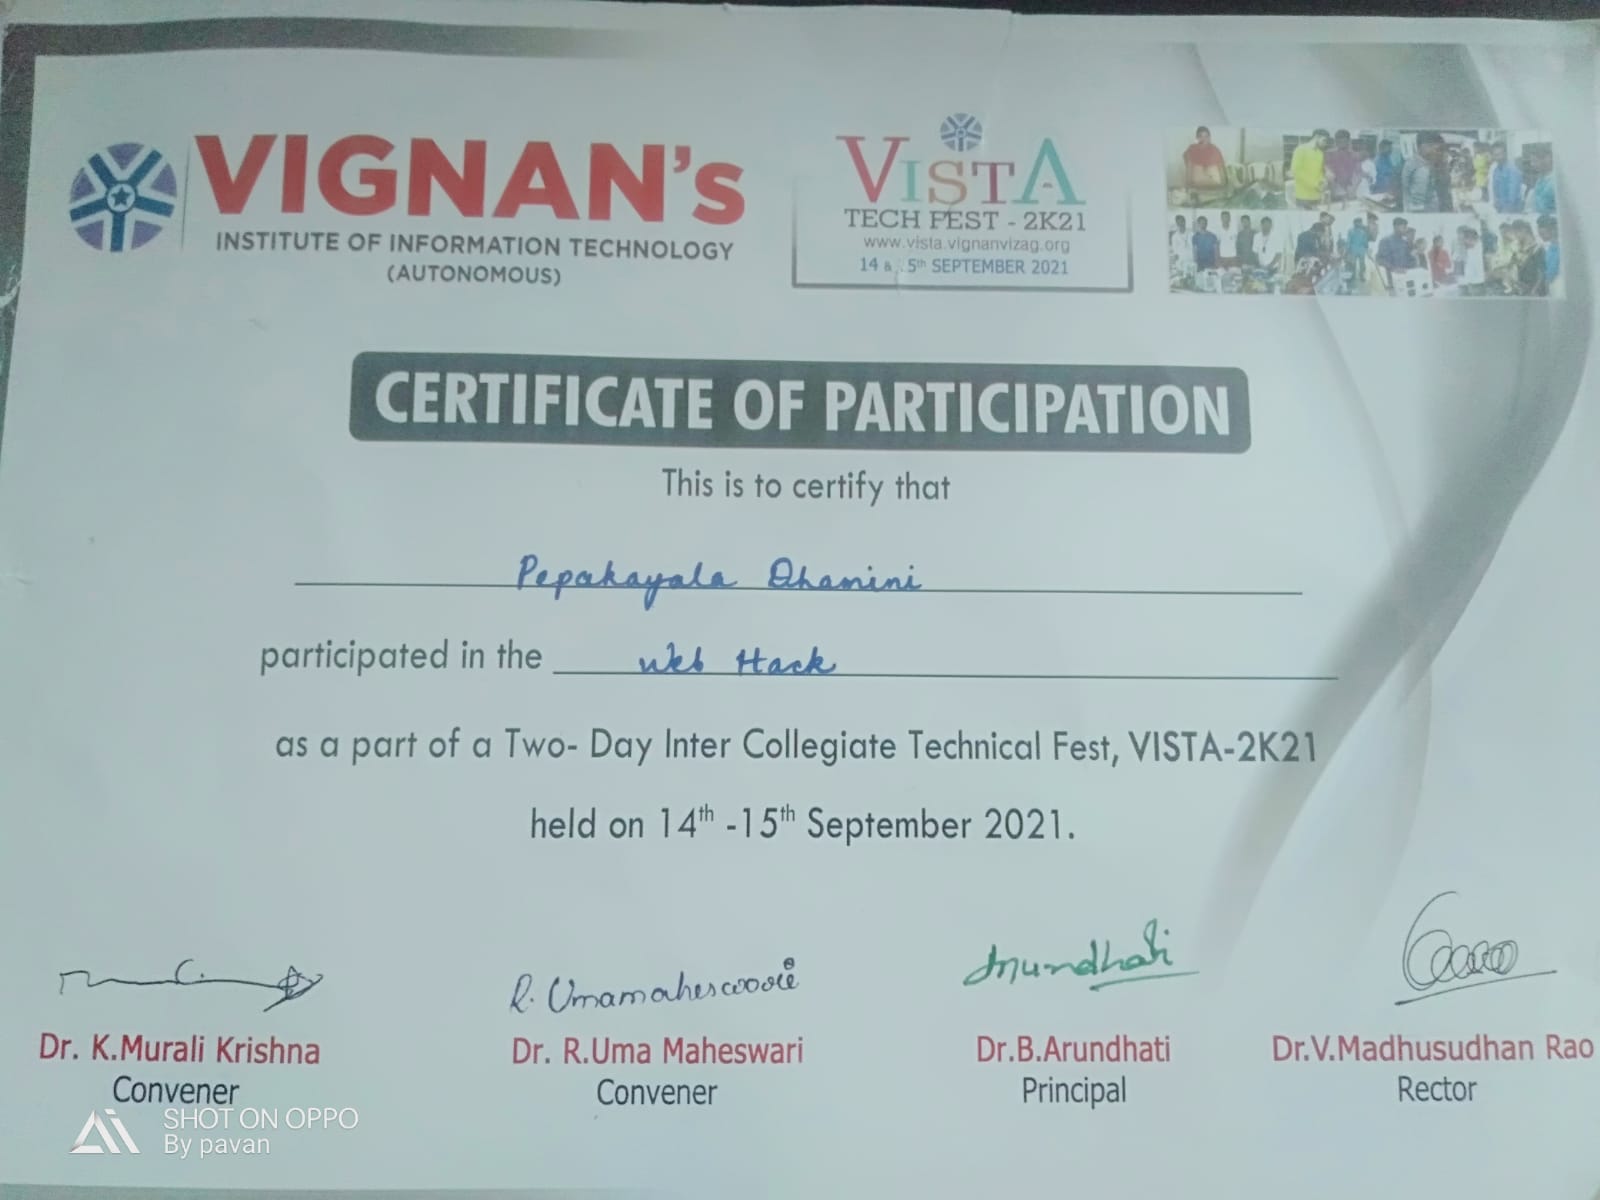 VIGNAN's
INSTITUTE OF INFORMATION TECHNOLOGY
(AUTONOMOUS)
VISTA
TECH FEST - 2K21
www.vista.vignanvizag.org
14 & 15th SEPTEMBER 2021
CERTIFICATE OF PARTICIPATION
This is to certify that
Pepakayala Dhanini
participated in the Web Hack
as a part of a Two- Day Inter Collegiate Technical Fest, VISTA-2K21
held on 14th -15th September 2021.
R. Umamaheswari
Arundhati
Dr. K.Murali Krishna
Convener
Dr. R.Uma Maheswari
Convener
Dr.B.Arundhati
Principal
Dr.V.Madhusudhan Rao
Rector
SHOT ON OPPO
By pavan